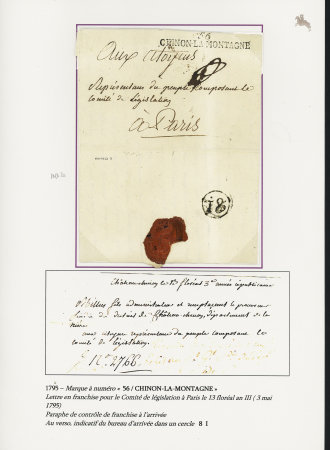 56
CHINON-LA-MONTAGNE
Aux Citoyens
Représentans du peuple composant le
comité de Législation
à Paris
18
Château-chinon le floréal 3e année républicaine
administrateur et remplaçant le procureur
du district de Château-chinon, département de la
aux citoyens représentans du peuple composant le
comité de législation.
N° 2766
1795 – Marque à numéro « 56 / CHINON-LA-MONTAGNE »
Lettre en franchise pour le Comité de législation à Paris le 13 floréal an III ( 3 mai
1795)
Paraphe de contrôle de franchise à l'arrivée
Au verso, indicatif du bureau d'arrivée dans un cercle 8 I